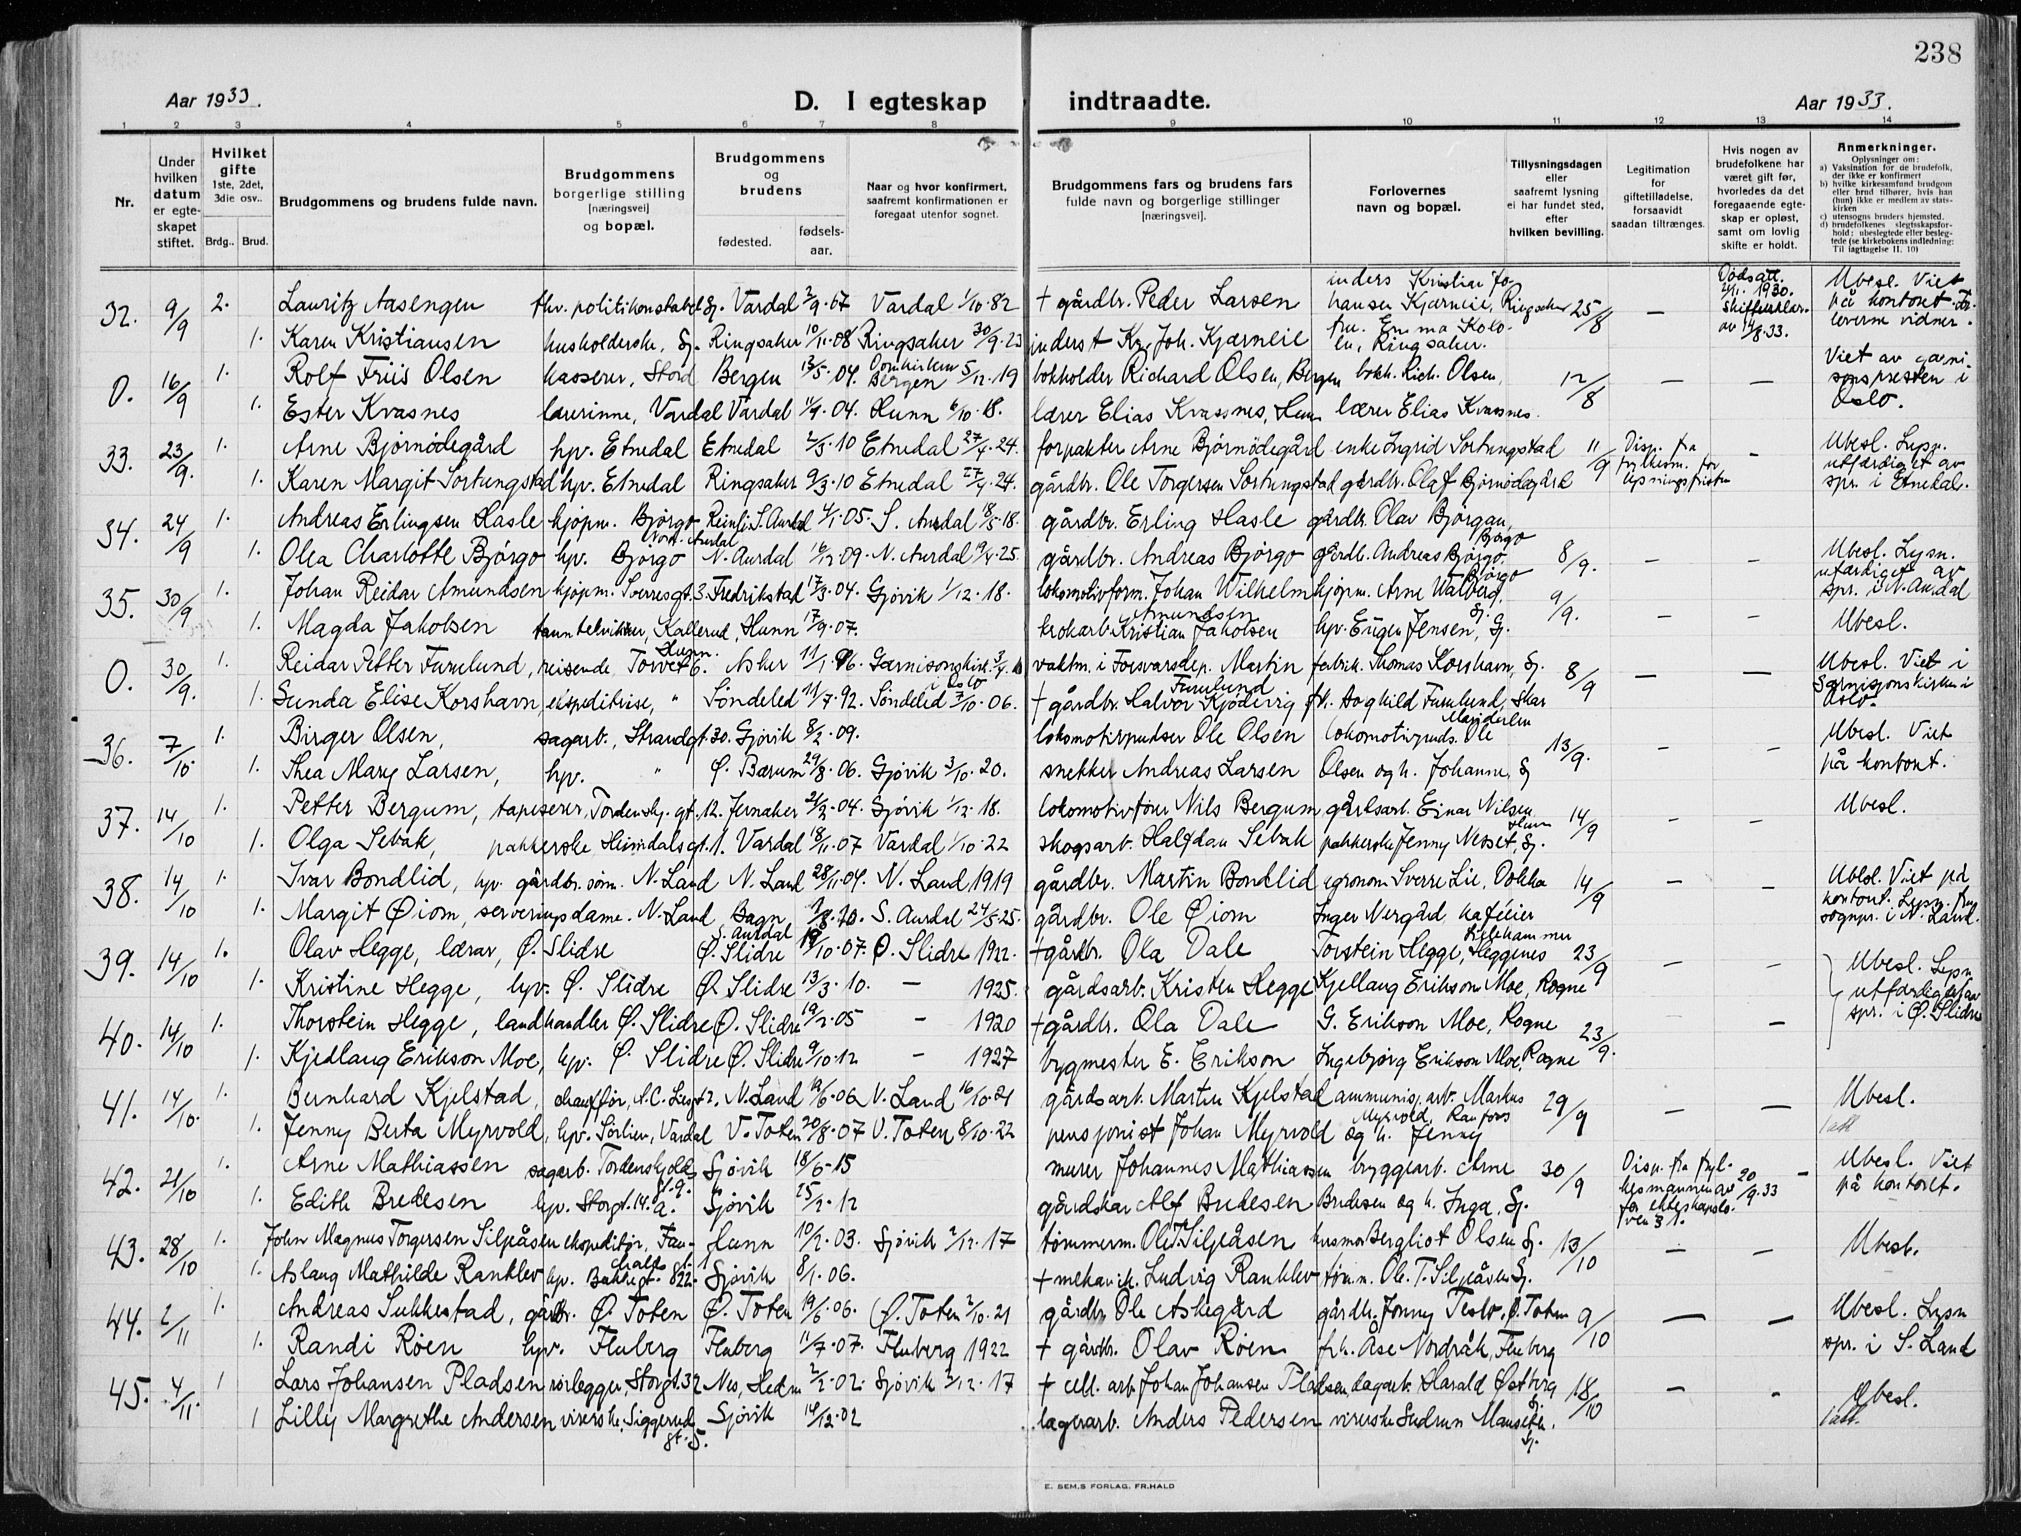 238
Aar 1933.
D. I egteskap indtraadte.
Aar 1933.
1 2 3 4 5 6 7 8 9 10 11 12 13 14
Nr.
Under hvilken datum er egteskapet stiftet.
Hvilket gifte 1ste, 2det, 3die osv..
Brdg.. Brud.
Brudgommens og brudens fulde navn.
Brudgommens borgerlige stilling [næringsvei] og bopæl.
Brudgommens og brudens
fødested.
fødselsaar.
Naar og hvor konfirmert, saafremt konfirmationen er foregaat utenfor sognet.
Brudgommens fars og brudens fars fulde navn og borgerlige stillinger [næringsvei].
Forlovernes navn og bopæl.
Tillysningsdagen eller saafremt lysning ei har fundet sted, efter hvilken bevilling.
Legitimation for giftetilladelse, forsaavidt saadan tiltrænges.
Hvis nogen av brudefolkene har været gift før, hvorledes da det foregaaende egteskap er opløst, samt om lovlig skifte er holdt.
Anmerkninger.
Oplysninger om:
a) Vaksination for de brudefolk, der ikke er konfirmert
b) hvilke kirkesamfund brudgom eller brud tilhører, hvis han (hun) ikke er medlem av statskirken
c) utensogns bruders hjemsted.
d) brudefolkenes slegtsskapsforhold: ubeslegtede eller beslegtede (se kirkebokens indledning: Til iagttagelse II. 10)
32. 9/9 2. Lauritz Aasengen fhv. politikonstabel Gj. Vardal 2/9.67 Vardal 1/10.82 + gårdbr. Peder Larsen inders Kristian Johansen Kjærneie, Ringsaker 25/8 — Dødsatt. 1930. Ubesl. Viet på kontoret. Forloverne vidner.
1. Karen Kristiansen husholderske, Gj. Ringsaker 10/11.08 Ringsaker 30/9.23 inderst Kr. Joh. Kjærneie fru Emma Ringsaker.
0. 16/9 1. Rolf Friis Olsen kasserer, Stord Bergen 13/5.04. Domkirken Bergen 5/12.19 bokholder Richard Olsen, Bergen bokh. Rich. Olsen, 12/8 — — Viet av garnisonspresten i Oslo.
1. Ester Kvasnes lærerinne, Vardal Vardal 11/9.04. Hunn 6/10.18. lærer Elias Kvassnes, Hunn lærer Elias Kvassnes.
33. 23/9. 1. Arne Bjørnødegård hpv. Etnedal Etnedal 2/3.10 Etnedal 27/4.24. forpakter Arne Bjørnødegård enke Ingrid Sortungstad 11/9 Disp. fra fylkesm. for lysningsfristen - Ubesl. Lysn. utfærdiget av spr. i Etnedal.
1. Karen Margit Sortungstad hpv. Etnedal Ringsaker 9/3.10 Etnedal 27/4.24. gårdbr. Ole Torgersen Sortungstad gårdbr. Olaf Bjørnødegård
34. 24/9 1. Andreas Erlingsen Hasle kjøpm. Bjørgo Nord-Aurdal Reinli S. Aurdal 4/1.05. S. Aurdal 18/5.18. gårdbr. Erling Hasle gårdbr. Olav Bjørgan, Bjørgo 8/9. - - Ubesl. Lysn. utfærdiget av spr. i N. Aurdal
1. Olea Charlotte Bjørgo hpv. Bjørgo N. Aurdal 16/12.09. N. Aurdal 9/4.25. gårdbr. Andreas Bjørgo gårdb. Andreas Bjørgo. Bjørgo
35. 30/9 1. Johan Reidar Amundsen kjøpm. Sverresgt. 3. Fredrikstad 17/3.04. Gjøvik 1/12.18. lokomotivform. Johan Wilhelm Amundsen kjøpm. Arne Walberg, Gj. 9/9. - - Ubesl.
1. Magda Jakobsen tanntekniker, Kallerud, Hunn 17/9.07. Kristian Jakobsen hpv. Eugen Jensen, Gj.
0. 30/9. 1. Reidar Petter Furulund, reisende Torvet 6. Asker 11/1.96. Garnisonskirk. i Oslo vaktm. i Forsvarsdep. Martin Furulund fabrik. Thomas Korshavn, Gj. 8/9 — — Ubesl. Viet i Garnisonskirken i Oslo.
1. Gunda Elise Korshavn, ekspeditrise, " Søndeled 11/7.92. Søndeled 7/10.06. + gårdbr. Halvor Kjødevig fr. Aaghild Furulund, Skar Maridalen
36. 7/10. 1. Birger Olsen, sagarb., Strandgt. 30. Gjøvik 8/2.09. lokomotivpudser Ole Olsen lokomotivpuds. Ole 13/9. - - Ubesl. Viet på kontoret.
1. Thea Mary Larsen, hpv. " Ø. Bærum 29/8.06. Gjøvik 3/10.20. snekker Andreas Larsen Olsen og h. Johanne, Gj
37. 14/10 1. Petter Bergum, tapetserer, Tordenskj. gt. 12. Jevnaker 21/2.04. Gjøvik 1/12.18. lokomotivfører Nils Bergum gårdsarb. Einar Nilsen Hunn 14/9 - - Ubesl.
1. Olga Sebak, pakkerske Heimdalsgt. 1. Vardal 18/11.07 Vardal 1/10.22 skogsarb. Halfdan Sebak pakkerske Jenny Nesset, Gj.
38. 14/10 1. Ivar Bondlid, hpv. gårdbr. sønn. N. Land N. Land 28/11.04. N. Land 1919 gårdbr. Martin Bondlid agronom Sverre Lie, Dokka 14/9 Ubesl. Viet på kontoret. Lysn. fra sognpr. i N. Land.
1. Margit Øiom, serveringsdame. N. Land Bagn S. Aurdal S. Aurdal 24/5.25. gårdbr. Ole Øiom Inger Nergård kaféeier Lillehammer
39. 14/10 1. Olav Hegge, lærar, Ø. Slidre Ø. Slidre 19/10.07. Ø. Slidre 1922. + gårdbr. Ola Dale Torstein Hegge, Heggenes 23/9 - - Ubesl. Lysn. utfærdiget av spr. i Ø. Slidre
1. Kristine Hegge, hpv. Ø. Slidre Ø. Slidre 13/3.10. — 1925. gårdsarb. Kristen Hegge Kjellaug Erikson Moe, Rogne
40. 14/10 1. Thorstein Hegge, landhandler Ø. Slidre Ø. Slidre 19/2.05 — 1920 + gårdbr. Ola Dale G. Erikson Moe, Rogne 23/9. -
1. Kjedlaug Erikson Moe, hpv. Ø. Slidre Ø. Slidre 9/10.12 — 1927 bygmester E. Erikson Ingebjørg Erikson Moe, Rogne
41. 14/10. 1. Bernhard Kjelstad, chauffør, N. Land 19/6.06 V. Land 16/10.21 gårdsarb. Martin Kjelstad ammunisj. arb. Markus Myrvold, Raufoss 29/9 — — Ubesl.
1. Jenny Berta Myrvold, hpv. Sørlien, Vardal V. Toten 20/8.07 V. Toten 8/10.22 pensjonist Johan Myrvold og h. Jenny 1 att
42. 21/10 1. Arne Mathiassen sagarb. Tordenskjoldsgt. 9. Gjøvik 18/6-15 murer Johannes Mathiassen bryggearb. Arne 30/9 Disp. fra fylkesmannen av 20/9.33 for ekteskapslovens § 1. - Ubesl. Viet på kontoret.
1. Edith Bredesen hpv. Storgt. 14. a. Gjøvik 25/2.12 gårdskar Alf Bredesen Bredesen og h. Inga, Gj.
43. 28/10 1. John Magnus Torgersen Siljeåsen ekspeditør, Hunn 10/2.03. Gjøvik 2/12.17 tømmerm. Ole T. Siljeåsen husmor Bergliot Olsen Gj. 13/10 - - Ubesl.
1. Aslaug Mathilde Ranklev hpv. Bakkegt. 822. Gjøvik 8/1.06. + mekanik. Ludvig Ranklev tømm. Ole T. Siljeåsen Gj.
44. 2/11 1. Andreas Sukkestad, gårdbr. Ø. Toten Ø. Toten 19/6.06. Ø. Toten 2/10.21 gårdbr. Ole Askegård gårdbr. Jonny Teslo, Ø. Toten 9/10 — — Ubesl. Lysn spr. i S. Land
1. Randi Røen hpv. Fluberg Fluberg 11/7.07. Fluberg 1922 + gårdbr. Olav Røen frk. Åse Nordråk, Fluberg
45. 4/11. 1 Lars Johansen Pladsen rørlegger, Storgt. 32 Nes, Hedm 2/2.02. Gjøvik 2/12.17 + cell. arb. Johan Johansen Pladsen dagarb. Harald Østberg Gj. 18/10 - - Ubesl.
1 Lilly Margrethe Andersen viverske, Niggerudgt. 5. Gjøvik 14/12.02 lagerarb. Anders Pedersen viverske Gudrun Gj. 1 att.
E. SEM,S FORLAG, FR.HALD